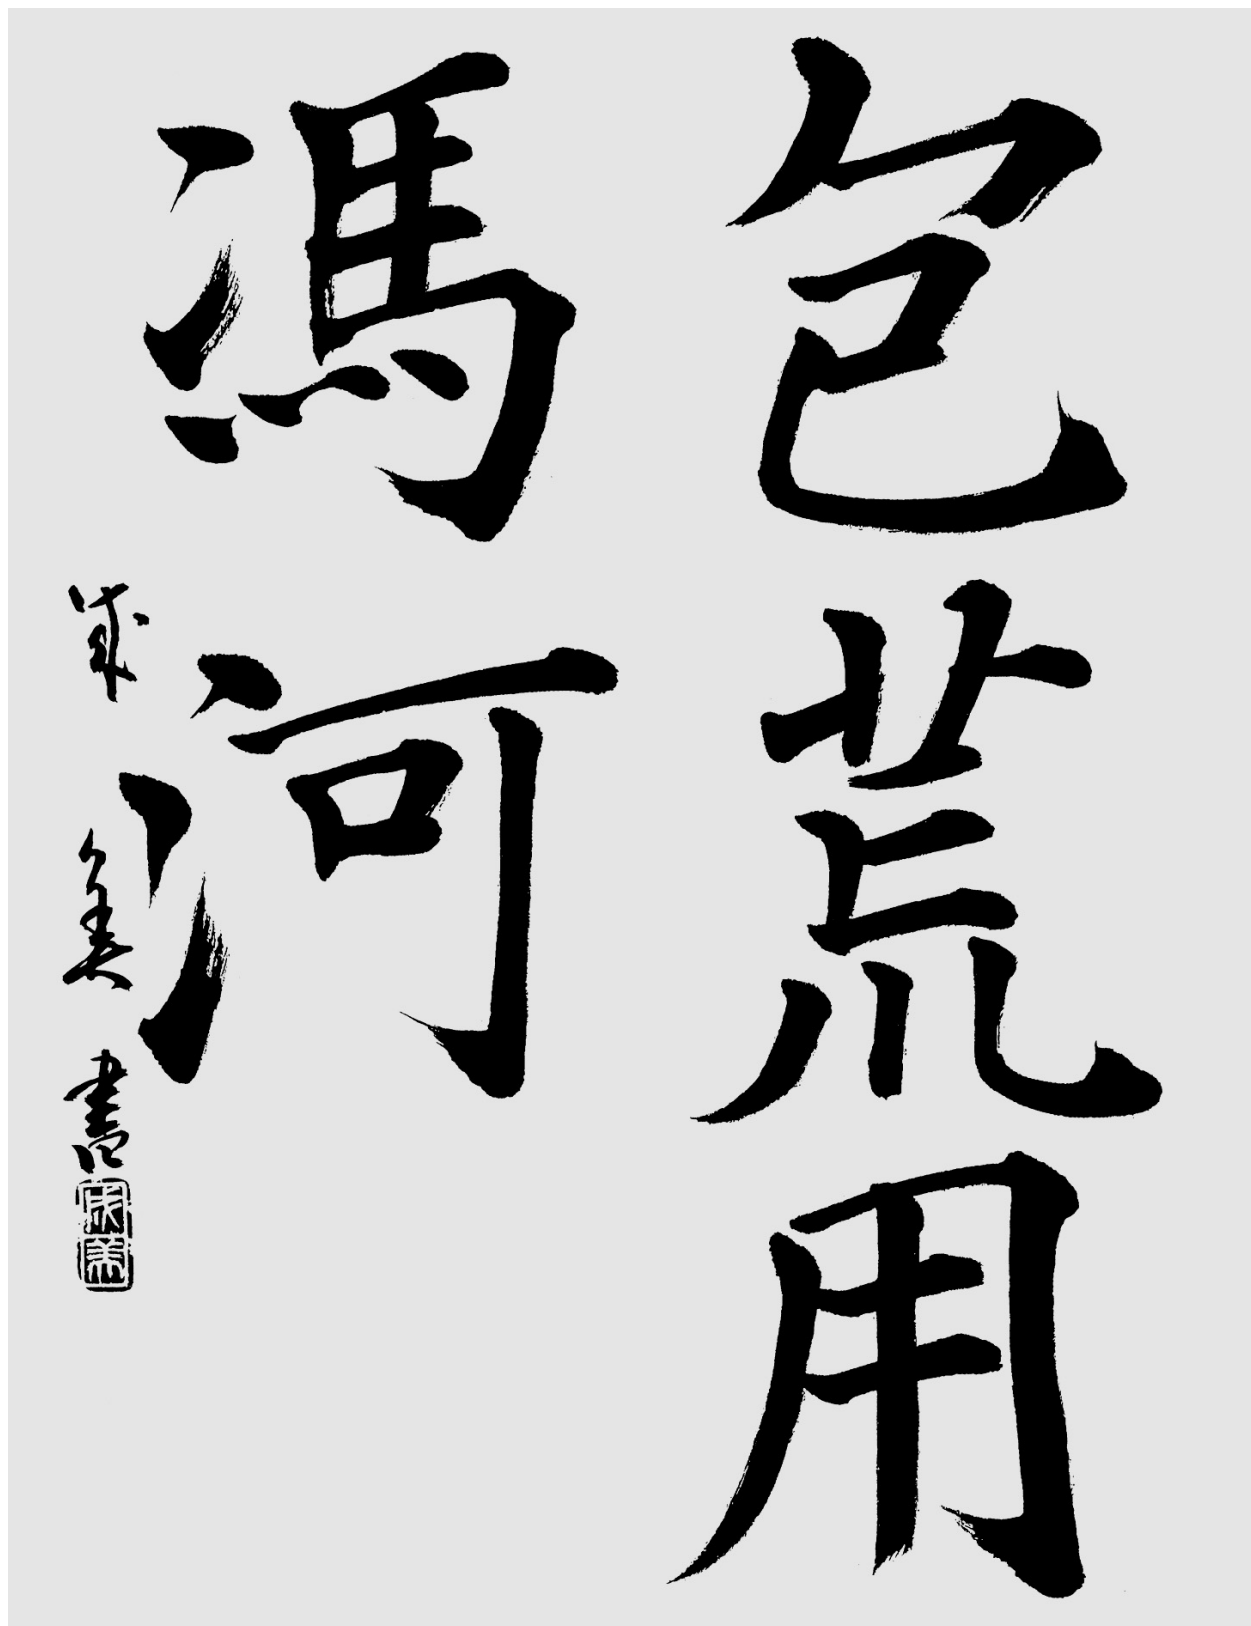 包荒用
馮河
成美書
成美